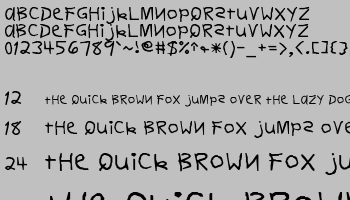 aBCDeFGHIjkLMNOPQRStuVWXYZ
aBCDeFGHIjkLMNOPQRStuVWXYZ
0123456789`~!@#$%^&*()-_+=>,<.[]{}
12 tHe QuiCk BROWN FOX juMPS OVeR tHe LaZY DOG
18 tHe QuiCk BROWN FOX juMPS OVeR
24 tHe QuiCk BROWN FOX ju